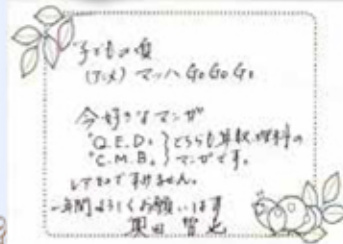 子どもの頃
(アニメ) マッハ GoGoGo
今好きなマンガ
"Q.E.D." どちらも算数・理科の
"C.M.B." マンガです。
ですけません。
一年間よろしくお願いします
奥田